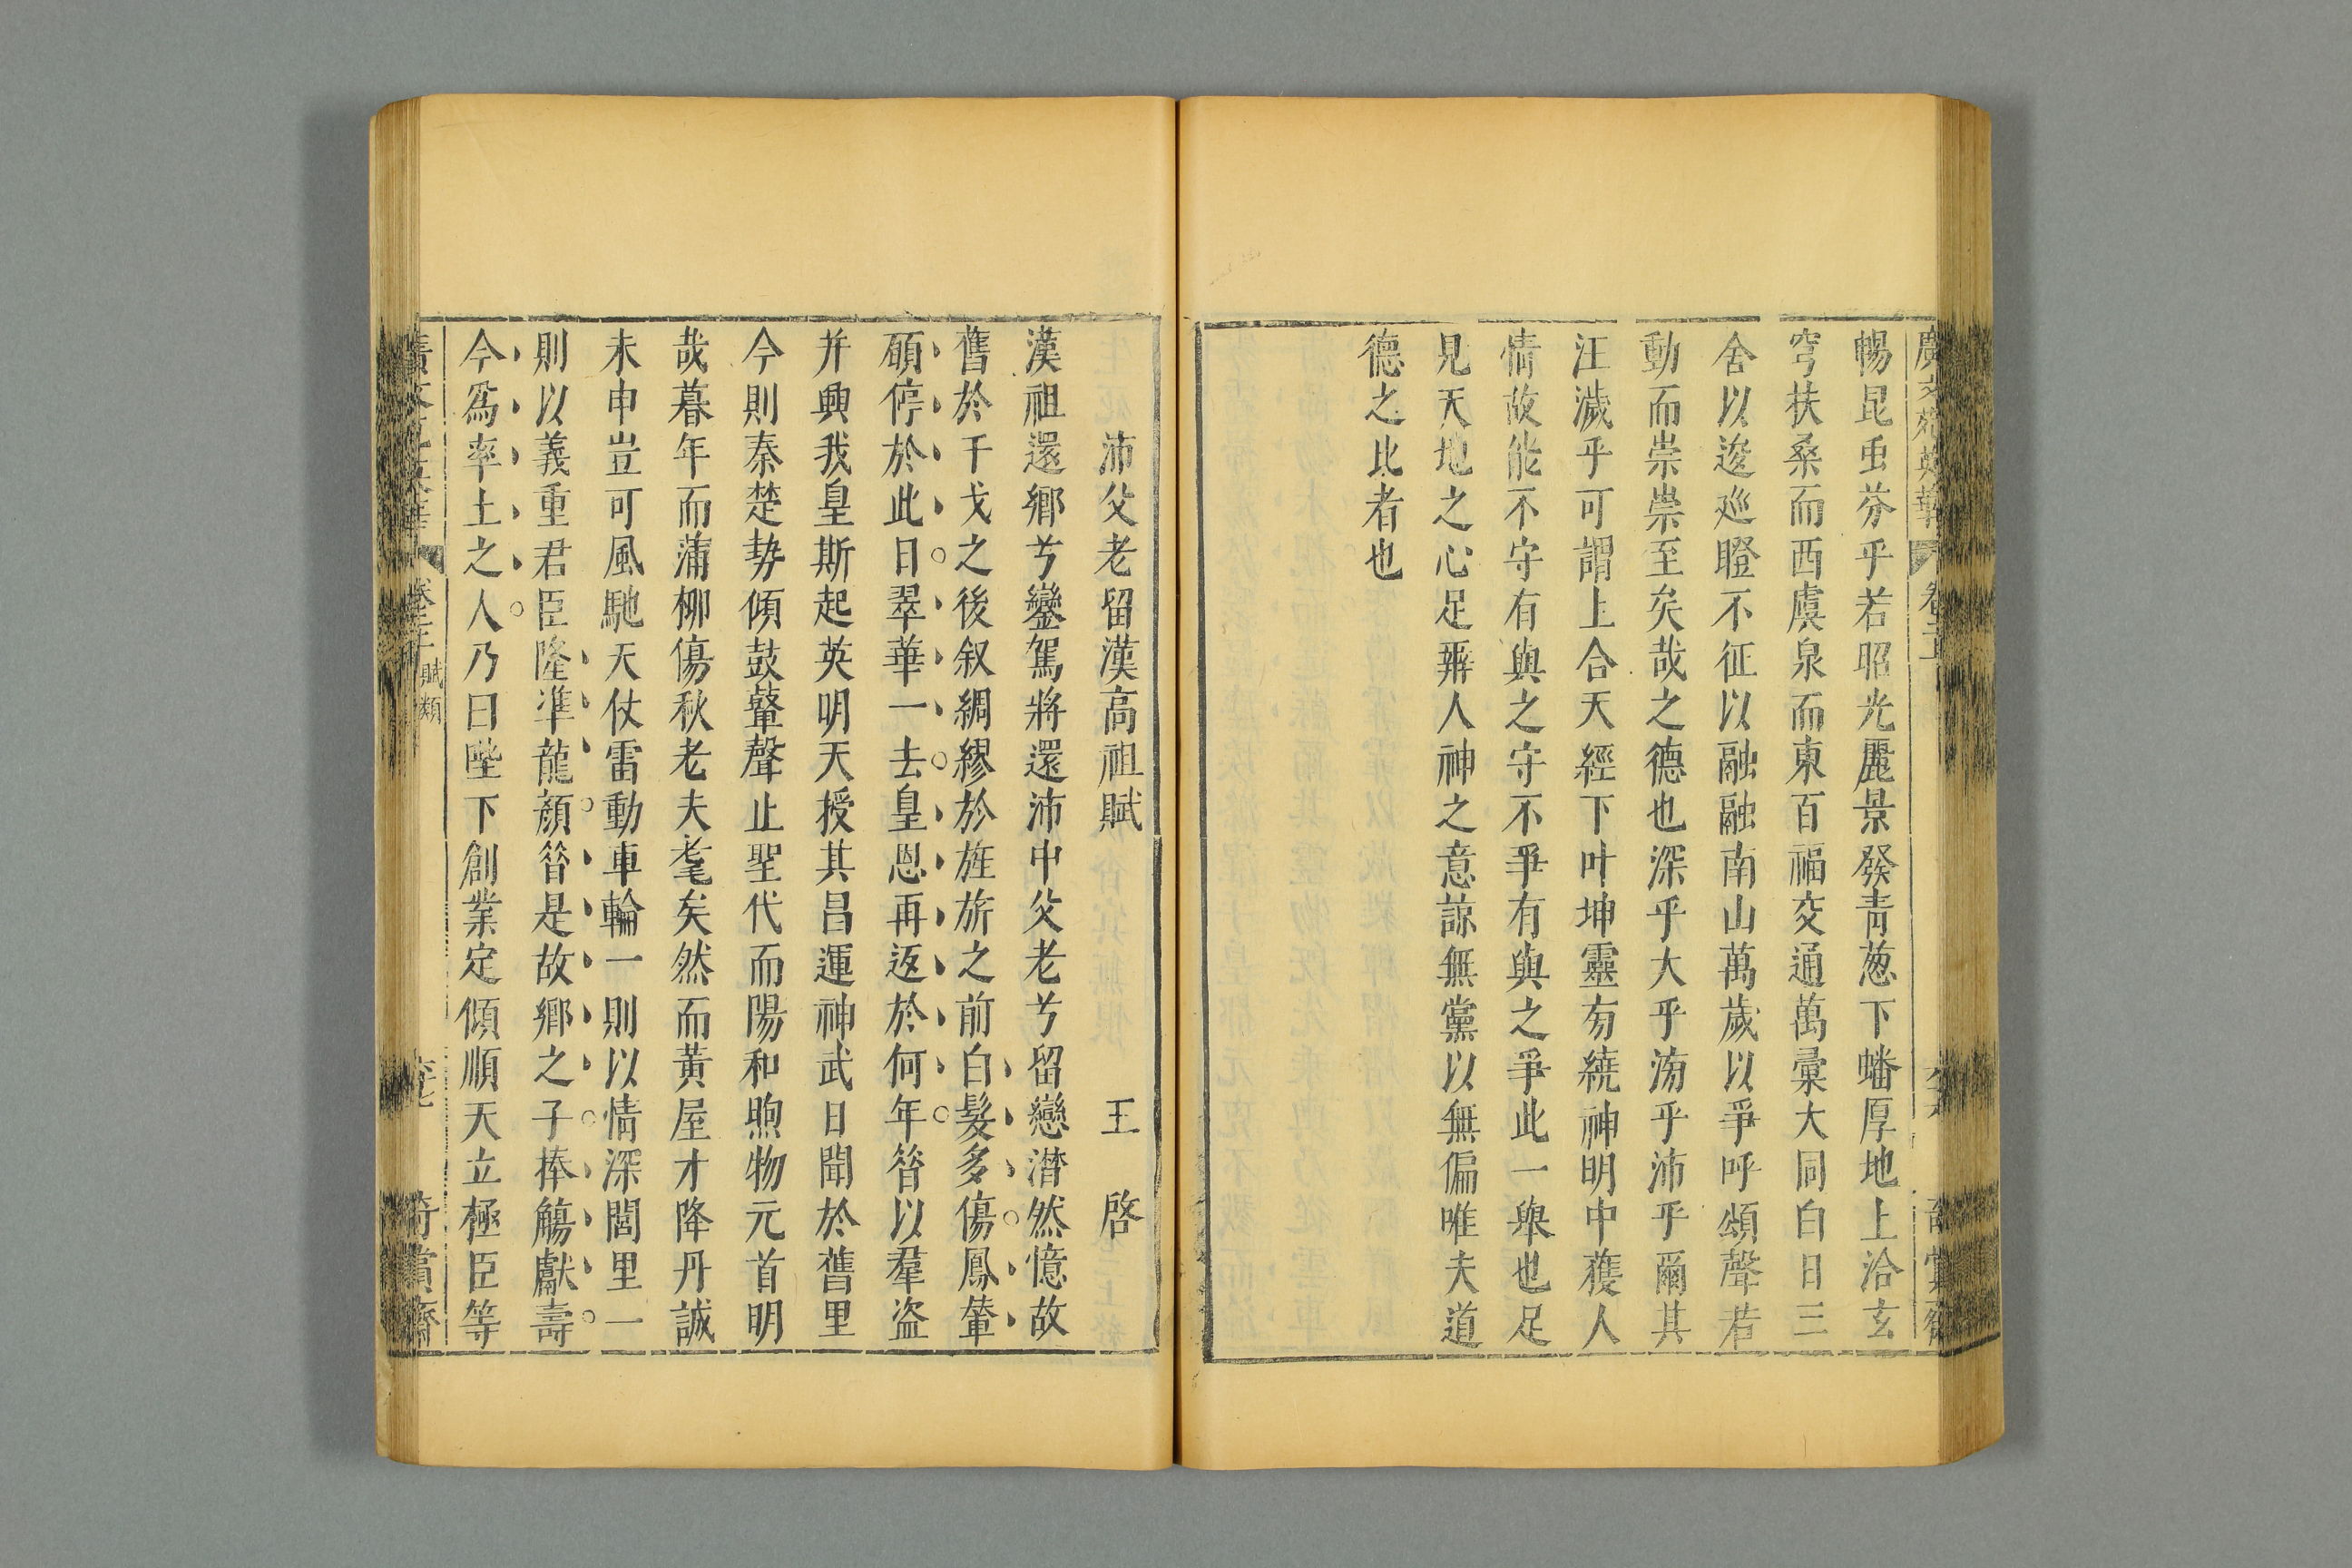 廣文苑英華 卷二十
暢昆虫芬乎若昭光麗景發青葱下蟠厚地上洽玄
穹扶桑而西虞泉而東百福交通萬彙大同白日三
舍以逡巡瞪不征以融融南山萬歲以爭呼頌聲若
動而崇崇至矣哉之德也深乎大乎滂乎沛乎爾其
汪濊乎可謂上合天經下叶坤靈旁繞神明中獲人
情故能不守有與之守不爭有與之爭此一舉也足
見天地之心足辨人神之意諒無黨以無偏唯夫道
德之比者也
沛父老留漢高祖賦 王啓
漢祖還鄉兮鑾駕將還沛中父老兮留戀潸然憶故
舊於干戈之後叙綢繆於旌旂之前白髮多傷鳳輦
碩停於此日翠華一去皇恩再返於何年昝以羣盜
并興我皇斯起英明天授其昌運神武日聞於舊里
今則秦楚勢傾鼓鼙聲止聖代而陽和煦物元首明
哉暮年而蒲栁傷秋老夫耄矣然而黃屋才降丹誠
未申豈可風馳天仗雷動車輪一則以情深閭里一
則以義重君臣隆準龍顏昝是故鄉之子捧觴獻壽
今爲率土之人乃曰陛下創業定傾順天立極臣等
賦類